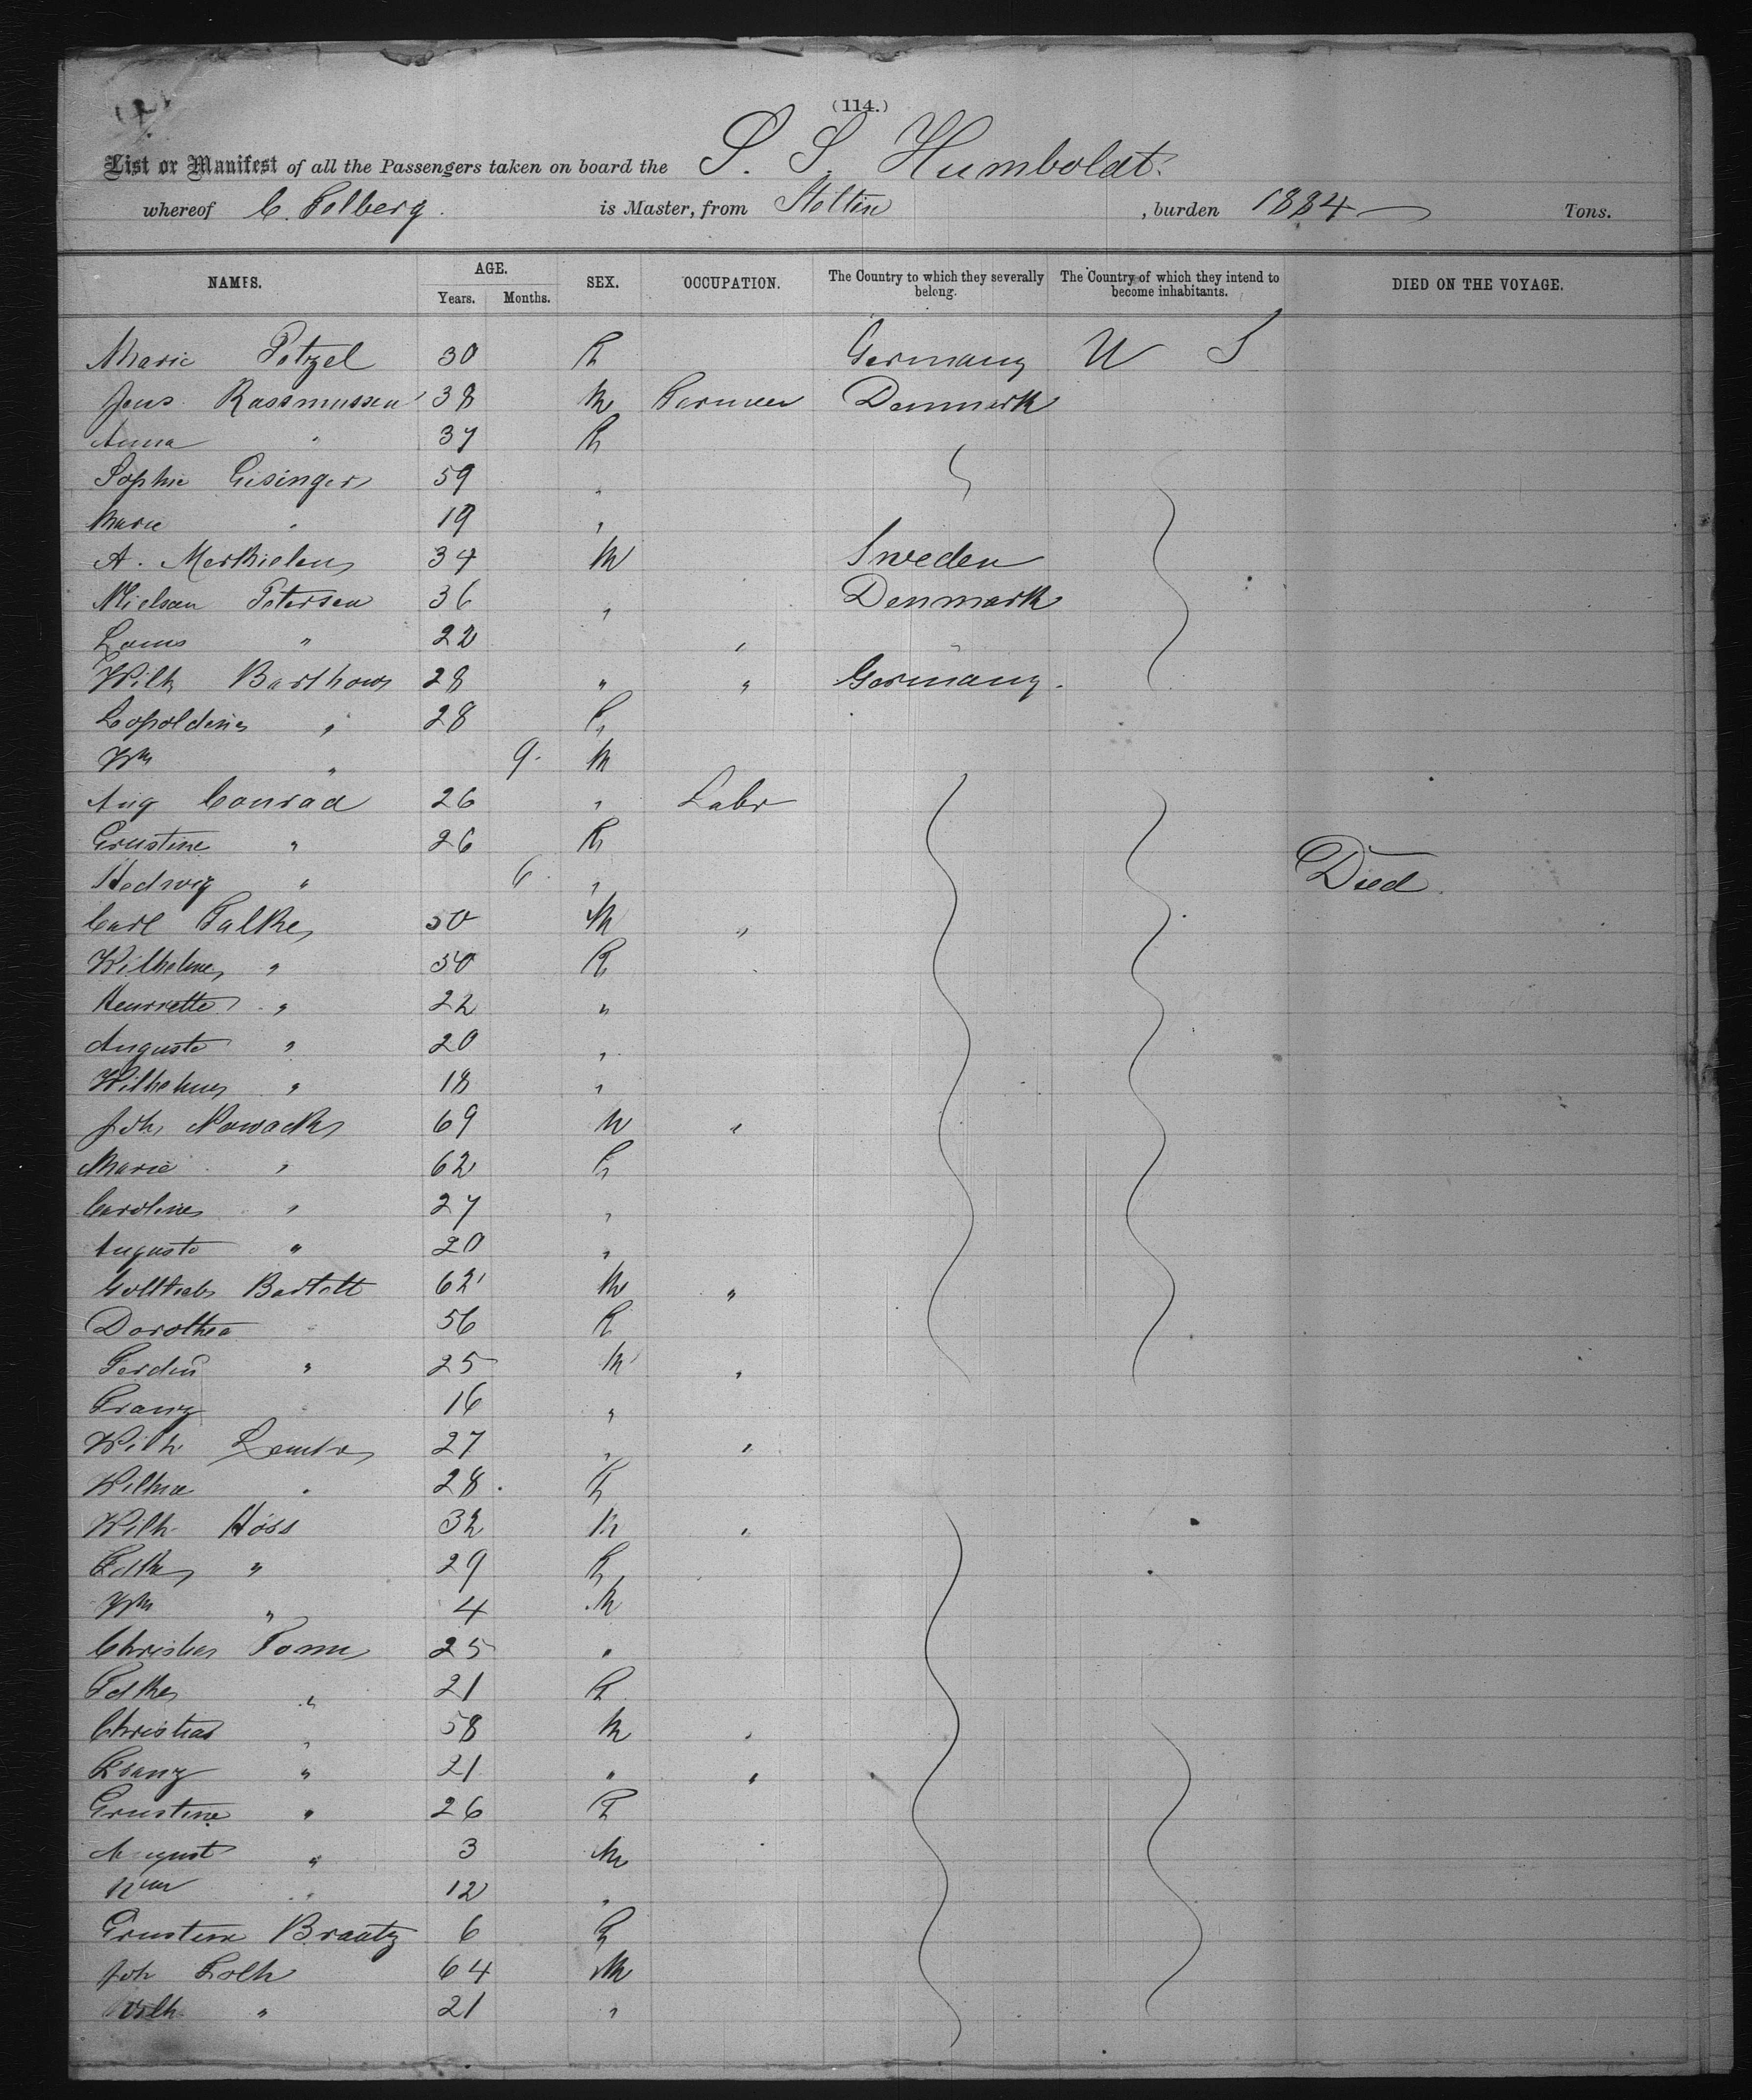 (114.)
List or Manifest of all the Passengers taken on board the S. S. Humboldt
whereof C. Polberg is Master, from Stettin, burden 1884 Tons.
NAMES. AGE. Years. Months. SEX. OCCUPATION. The Country to which they severally belong. The Country of which they intend to become inhabitants. DIED ON THE VOYAGE.
Marie Petzel 30 F Germany U S
Jens Rassmussen 38 M Farmer Denmark
Anna " 37 F
Sophie Gisinger 59 "
Marie " 19 "
A. 34 M Sweden
Nielsen Petersen 36 " Denmark
" 22 "
Wilh Barthow 28 " " Germany.
Leopoldine " 28 F
Wm " 9. M
Aug Conrad 26 " Labr
Ernstine " 26 F
Hedwig " 6 " Died.
Carl Falke 50 M "
Wilhelme " 50 F
Henriette " 22 "
Auguste " 20 "
Wilhelme " 18 "
Joh Nowack 69 M "
Marie " 62 F
Caroline " 27 "
Auguste " 20 "
Gottlieb Bartelt 62 M "
Dorothea 56 F
Ferdin " 25 M "
Franz 16 "
Wilh 27 " "
Wilhe " 28 F
Wilh Höss 32 M "
" 29 F
Wm " 4 M
Christian 25 "
" 21 F
Christian " 58 M "
Franz " 21 " "
Ernstine " 26 F
August " 3 M
Wm " 12 "
Ernstine Braatz 6 F
Joh 64 M
Wilh " 21 "